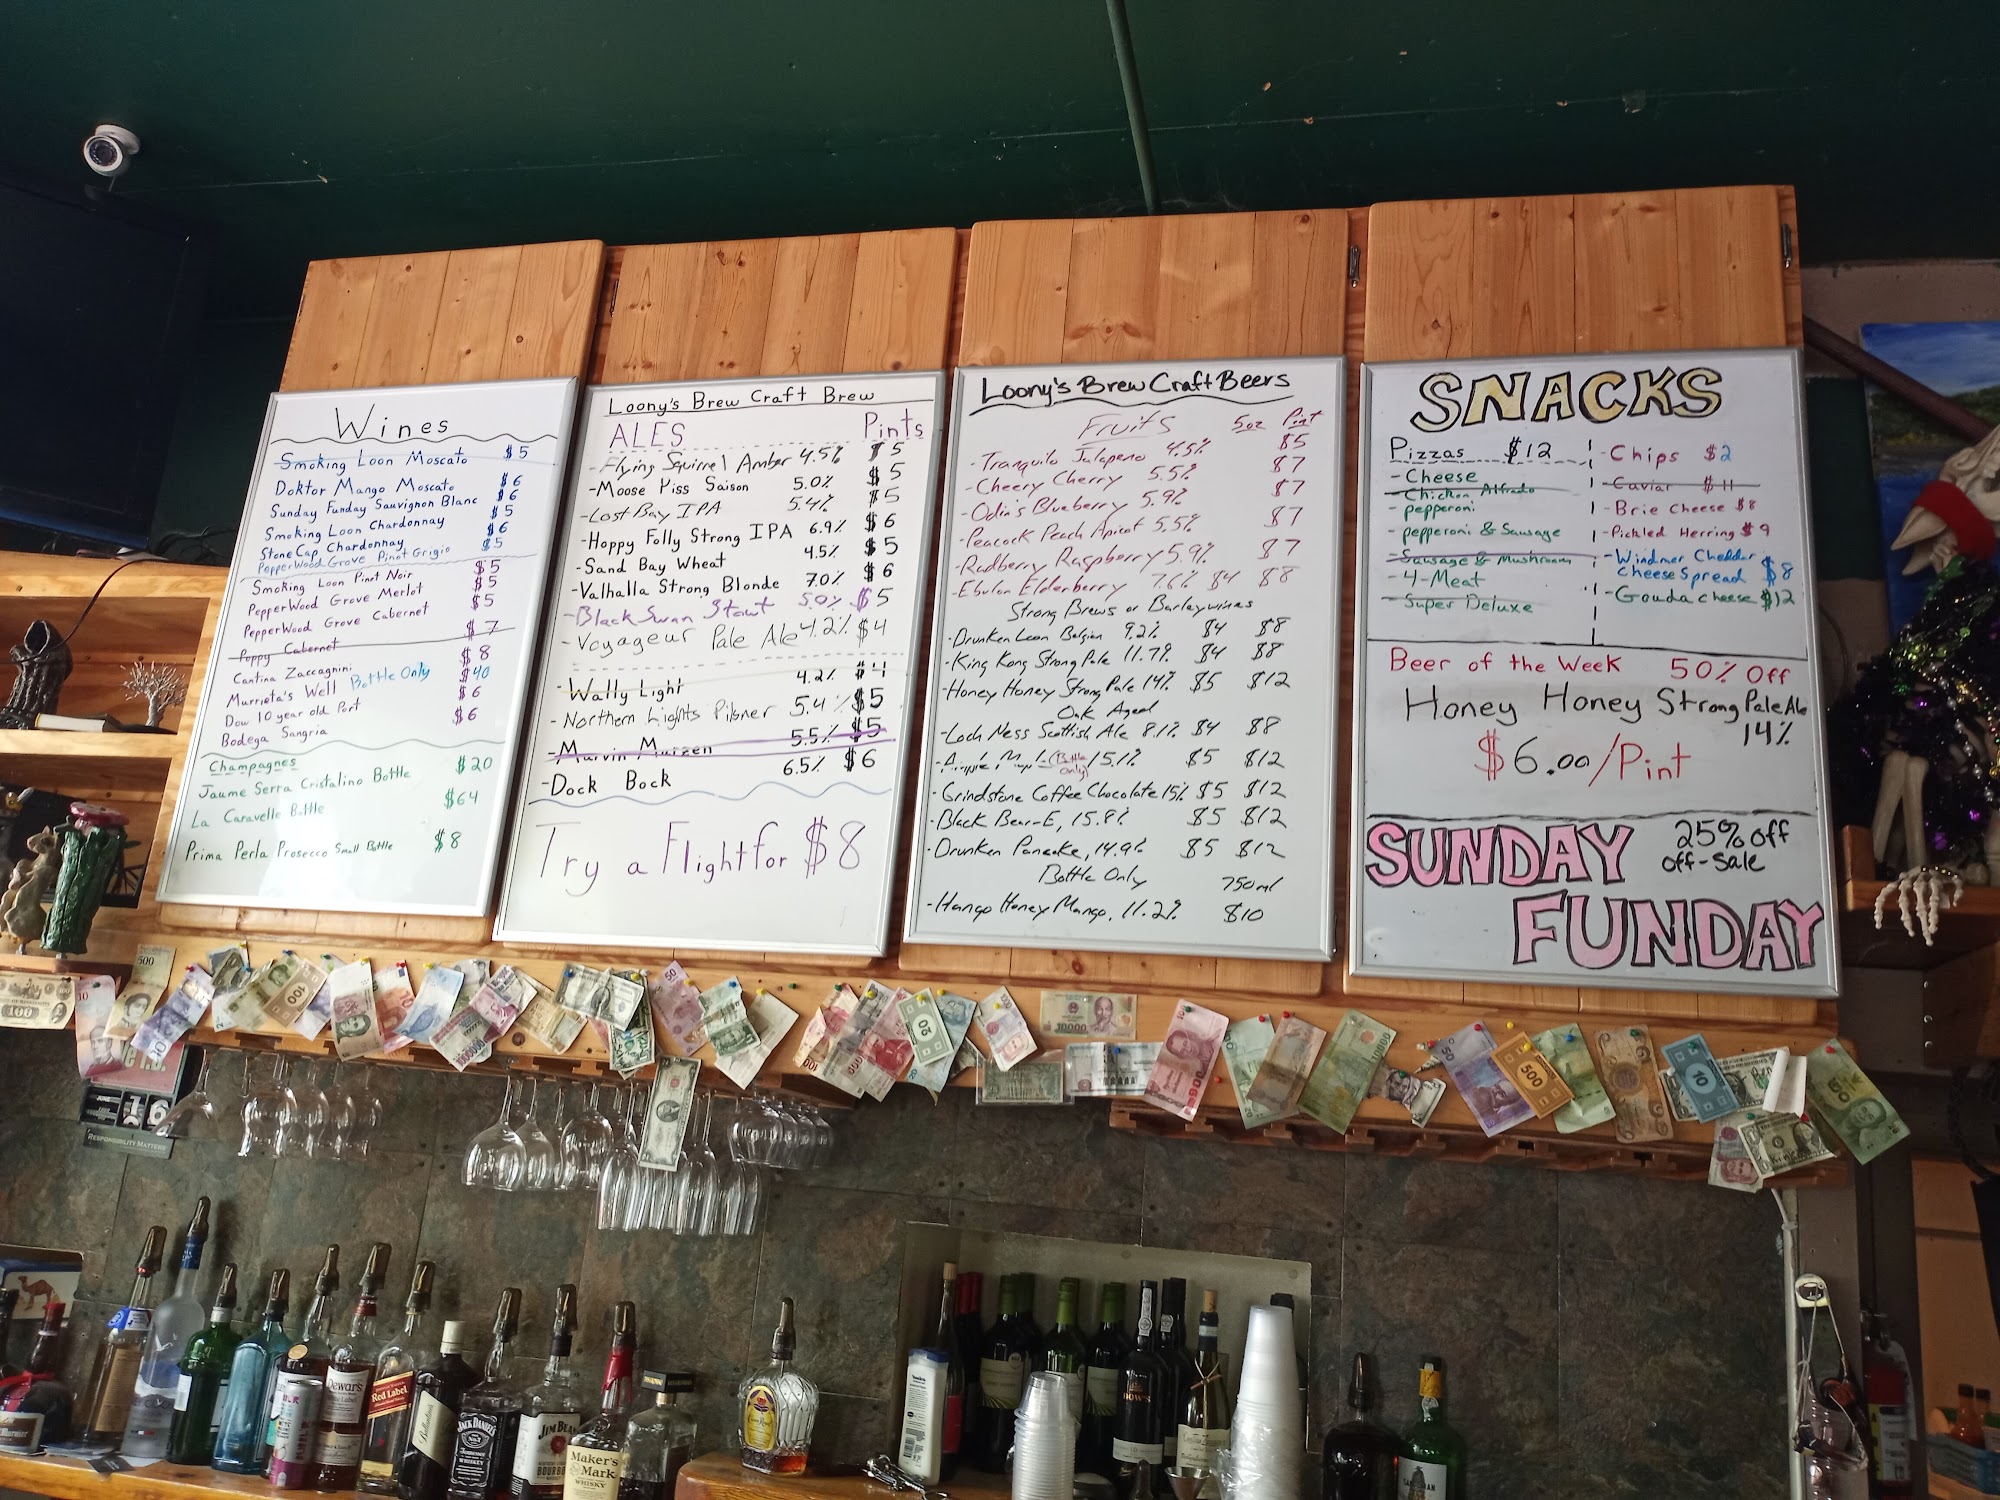 Wines
Smoking Loon Moscato $5
Doktor Mango Moscato $6
Sunday Funday Sauvignon Blanc $6
Smoking Loon Chardonnay $5
StoneCap Chardonnay $6
PepperWood Grove Pinot Grigio $5
Smoking Loon Pinot Noir $5
PepperWood Grove Merlot $5
PepperWood Grove Cabernet $5
Poppy Cabernet $7
Cantina Zaccagnini $8
Murrieta's Well Bottle Only $40
Dow 10 year old Port $6
Bodega Sangria $6
Champagnes
Jaume Serra Cristalino Bottle $20
La Caravelle Bottle $64
Prima Perla Prosecco Small Bottle $8
Loony's Brew Craft Brew
ALES Pints
-Flying Squirrel Amber 4.5% $5
-Moose Kiss Saison 5.0% $5
-Lost Bay IPA 5.4% $5
-Hoppy Folly Strong IPA 6.9% $6
-Sand Bay Wheat 4.5% $5
-Valhalla Strong Blonde 7.0% $6
-Black Swan Stout 5.0% $5
-Voyageur Pale Ale 4.2% $4
-Wally Light 4.2% $4
-Northern Lights Pilsner 5.4% $5
-Marvin Marzen 5.5% $5
-Dock Bock 6.5% $6
Try a Flight for $8
Loony's Brew Craft Beers
Fruits 5oz Pint
-Tranquilo Jalapeno 4.5% $5
-Cheery Cherry 5.5% $7
-Odin's Blueberry 5.9% $7
-Peacock Peach Apricot 5.5% $7
-Radberry Raspberry 5.9% $7
-Ebulon Elderberry 7.6% $4 $8
Strong Brews or Barleywines
-Drunken Loon Belgian 9.2% $4 $8
-King Kong Strong Pale 11.7% $4 $8
-Honey Honey Strong Pale 14% $5 $12
Oak Aged
-Loch Ness Scottish Ale 8.1% $4 $8
(Bottle Only) 15.1% $5 $12
-Grindstone Coffee Chocolate 15% $5 $12
-Black Bear-E, 15.8% $5 $12
-Drunken Pancake, 14.9% $5 $12
Bottle Only 750ml
-Hango Honey Mango, 11.2% $10
SNACKS
Pizzas $12
-Cheese
-Chicken Alfredo
-pepperoni
-pepperoni & Sausage
-Sausage & Mushroom
-4-Meat
-Super Deluxe
-Chips $2
-Caviar $11
-Brie Cheese $8
-Pickled Herring $9
-Windmer Cheddar
Cheese Spread $8
-Gouda cheese $12
Beer of the Week 50% Off
Honey Honey Strong Pale Ale
14%
$6.00/Pint
SUNDAY
FUNDAY
25% off
off-sale
500
100
50
100
20
10000
50
500
10
50
JUNE
16
RESPONSIBILITY MATTERS
Dewar's
Red Label
Ballantine's
JACK DANIEL'S
JIM BEAM
BOURBON
Maker's
Mark
WHISKY
DOW'S